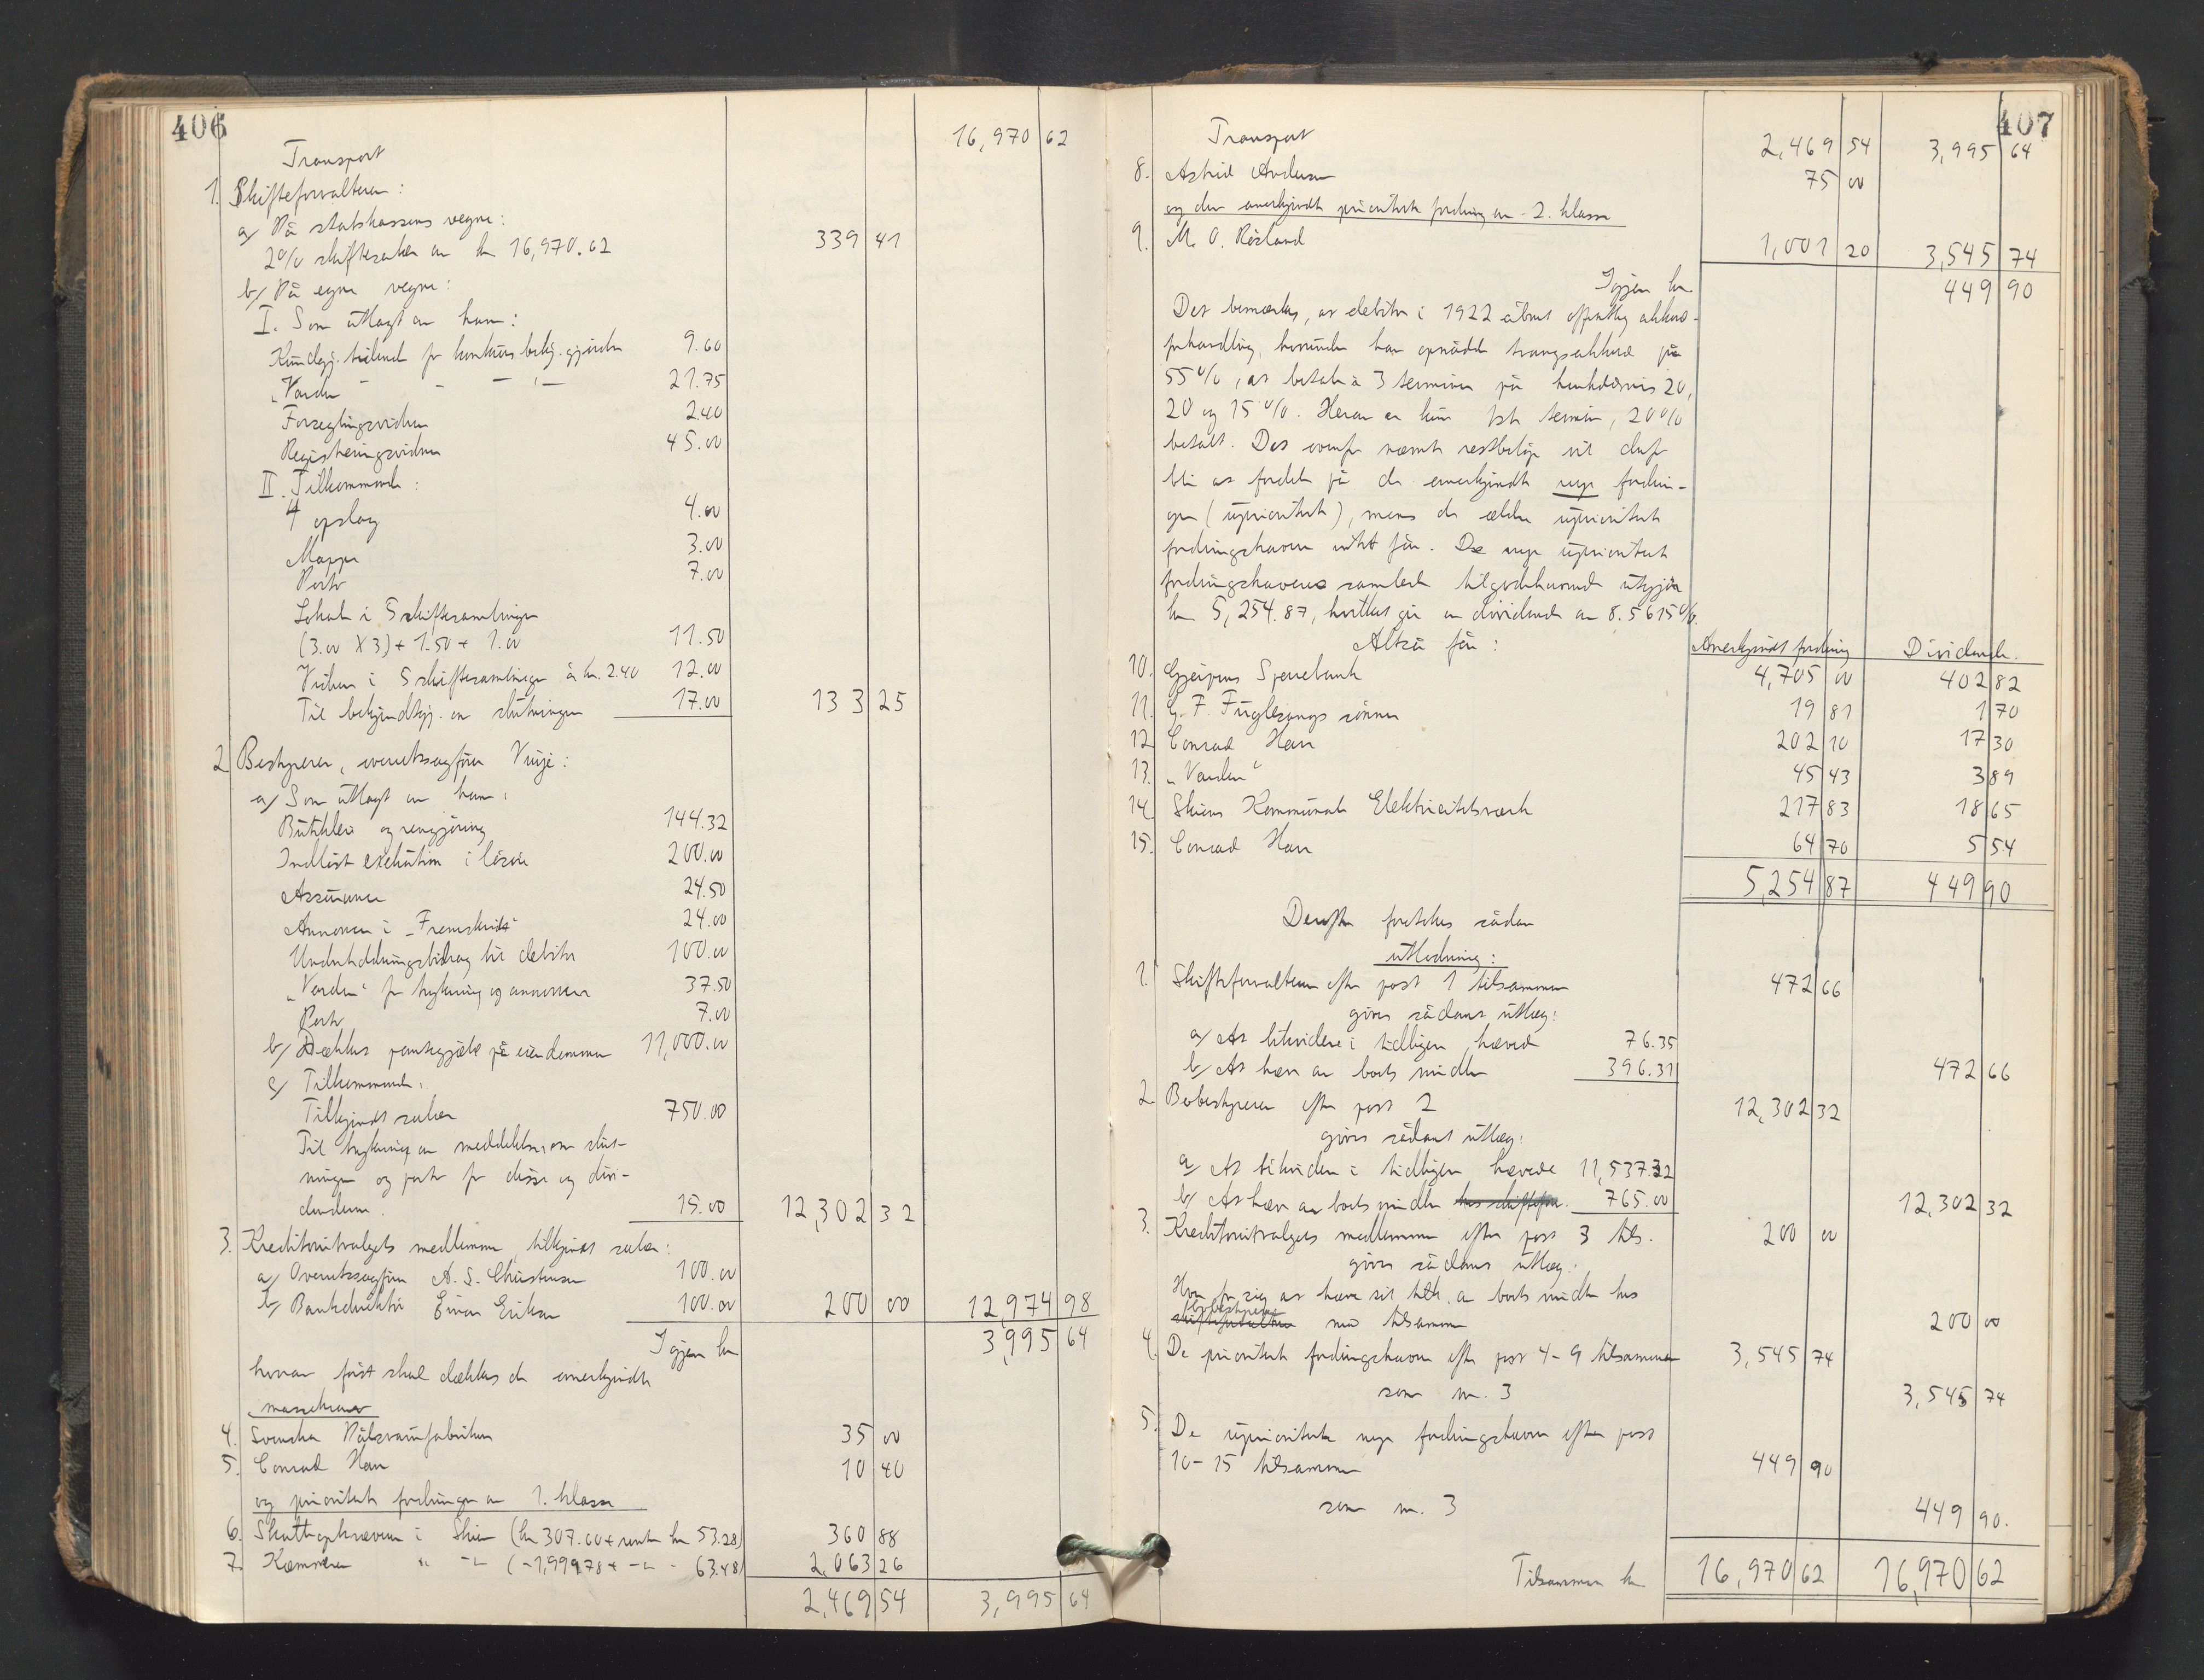 406
Transport 16,970 62
1. Skifteforvalteren:
a/ På statskassens vegne:
2% skiftesalær av kr 16,970.62 339 41
b/ På egne vegne:
I. Som utlagt av ham:
Kundgj. tidende for konkurs bekj. gjørelse 9.60
"Varden" - - - " - 21.75
Forseglingsvidner 2.40
Registreringsvidner 45.00
II. Tilkommende:
4 opslag 4.00
Mappe 3.00
Porto 7.00
Lokale i 5 skiftesamlinger
(3.00 X 3) + 1.50 + 1.00 11.50
Vidner i 5 skiftesamlinger à kr. 2.40 12.00
Til bekjendtgj. av slutningen 17.00 133 25
2. Bestyreren, overretssagfører Vinje:
a/ Som utlagt av ham:
Butikleie og rengjøring 144.32
Indløst exekution i løsøre 200.00
Assurance 24.50
Annonser i "Fremskridt" 24.00
Underholdningsbidrag til debitor 100.00
"Varden" for trykning og annonser 37.50
Porto 7.00
b/ Dækket pantegjæld på eiendommen 11,000.00
c/ Tilkommende:
Tilkjendt salær 750.00
Til trykning av meddelelser om slut-
ningen og porto for disse og divi-
dendene. 15.00 12,302 32
3. Kreditorutvalgets medlemmer, tilkjendt salær:
a/ Overretssagfører A. S. Christensen 100.00
b/ Bankdirektør Einar Eriksen 100.00 200 00 12,974 98
Igjen kr 3,995 64
hvorav først skal dækkes de anerkjendte
massekrav
4. Svenska Pälsvarufabriken 35 00
5. Conrad Harr 10 40
og prioriterte fordringer av 1. klasse
6. Skatteopkræveren i Skien (kr 307.60 + renter kr 53.28) 360 88
7. Kæmneren " - " - (- 1,999 78 + - " - 63.48) 2,063 26
2,469 54 3,995 64
407
Transport 2,469 54 3,995 64
8. Astrid Andersen 75 00
og den anerkjendte prioriterte fordring av 2. klasse
9. M. O. Røsland 1,001 20 3,545 74
Igjen kr 449 90
Det bemærkes, at debitor i 1922 åbnet offentlig akkord-
forhandling, hvorunder han opnådde tvangsakkord på
55%, at betale i 3 terminer på henholdsvis 20,
20 og 15%. Herav er kun 1ste termin, 20%
betalt. Det ovenfor nævnte restbeløp vil derfor
bli at fordele på de anerkjendte nye fordrin-
ger (upriorterte), mens de ældre upriorterte
fordringshavere intet får. De nye upriorterte
fordringshaveres samlede tilgodehavende utgjør
kr 5,254.87, hvilket gir en dividende av 8.5615%.
Altså får: Anerkjendt fordring Dividende.
10. Gjerpens Sparebank 4,705 00 402 82
11. G. F. Fuglesangs sønner 19 81 1 70
12. Conrad Harr 202 10 17 30
13. "Varden" 45 43 3 89
14. Skiens Kommunale Elektricitetsverk 217 83 18 65
15. Conrad Harr 64 70 5 54
5,254 87 449 90
Derefter foretokes sådan
utlodning:
1. Skifteforvalteren efter post 1 tilsammen 472 66
gives sådant utlæg:
a/ At likvidere i tidligere hævede 76.35
b/ At hæve av boets midler 396.31 472 66
2. Bobestyreren efter post 2 12,302 32
gives sådant utlæg:
a/ At likvidere i tidligere hævede 11,537.32
b/ At hæve av boets midler hos skiftefor. 765.00 12,302 32
3. Kreditorutvalgets medlemmer efter post 3 tils. 200 00
gives sådant utlæg:
Hver for sig at hæve sit tilk. av boets midler hos
bobestyreren
skifteforvalteren med tilsammen 200 00
4. De prioriterte fordringshavere efter post 4-9 tilsammen 3,545 74
som nr. 3 3,545 74
5. De upriorterte nye fordringshavere efter post
10-15 tilsammen 449 90
som nr. 3 449 90.
Tilsammen kr 16,970 62 16,970 62